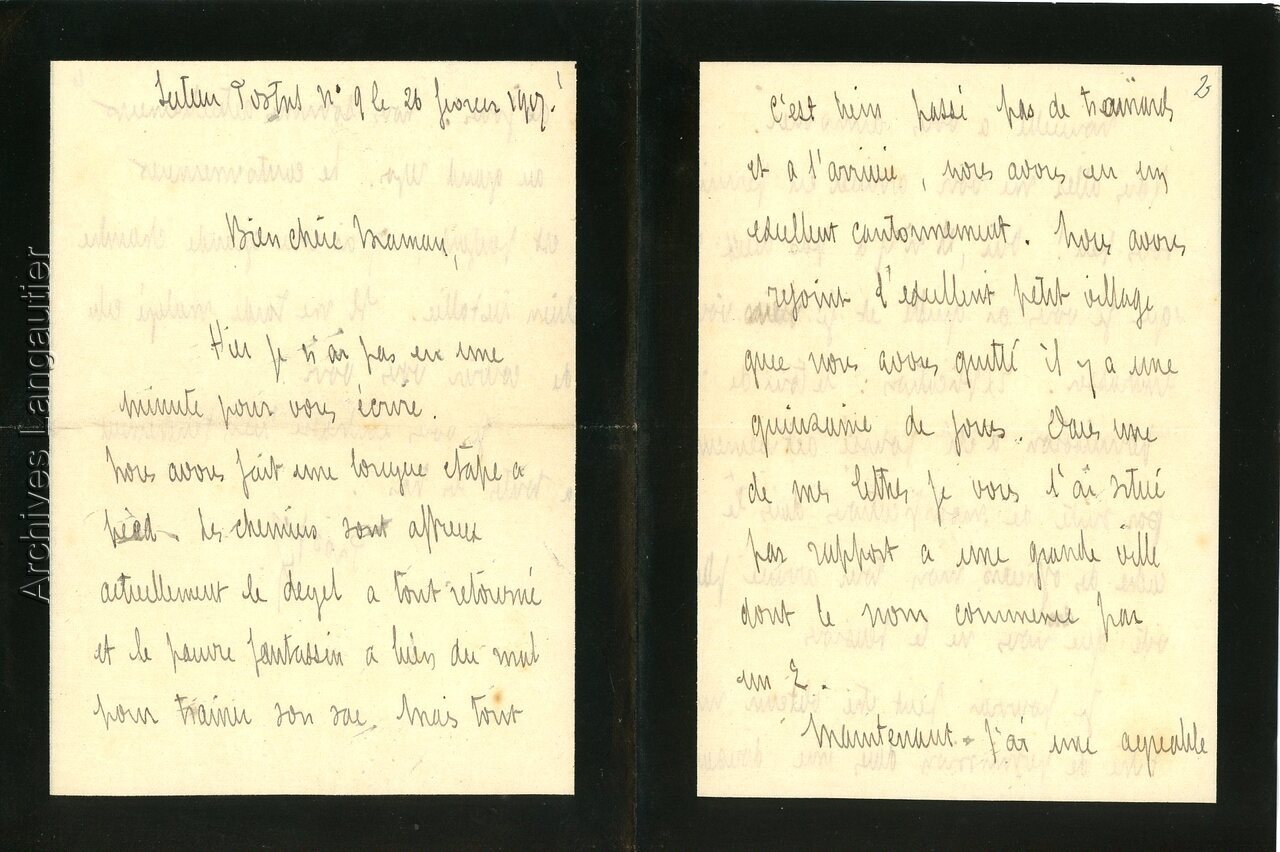 Secteur Postal N° 9 le 26 fevrier 1917.
Bien chère Maman,
Hier je n'ai pas eu une
minute pour vous écrire.
Nous avons fait une longue etape a
pied. Les chemins sont affreux
actuellement le degel a tout retourné
et le pauvre fantassin a bien du mal
pour trainer son sac. Mais tout
2
c'est bien passé pas de trainards
et a l'arrivée, nous avons eu un
excellent cantonnement. Nous avons
rejoint l'excellent petit village
que nous avons quitté il y a une
quinzaine de jours. Dans une
de mes lettres je vous l'ai situé
par rapport a une grande ville
dont le nom commence par
un
Maintenant j'ai une agreable
Archives Langautier